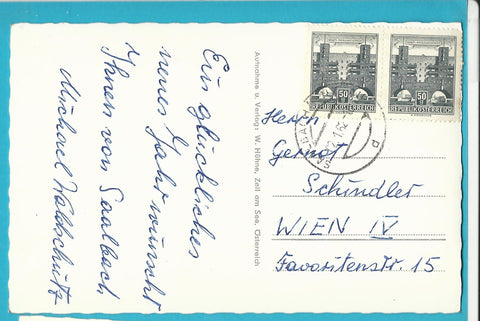 Ein glückliches
neues Jahr wünscht
Ihnen von Saalbach
Michael Waldschütz
Aufnahme u. Verlag: W. Höhne, Zell am See, Österreich
50
REPUBLIK ÖSTERREICH
50
REPUBLIK ÖSTERREICH
Herrn
Gernot
Schindler
WIEN IV
Favoritenstr. 15